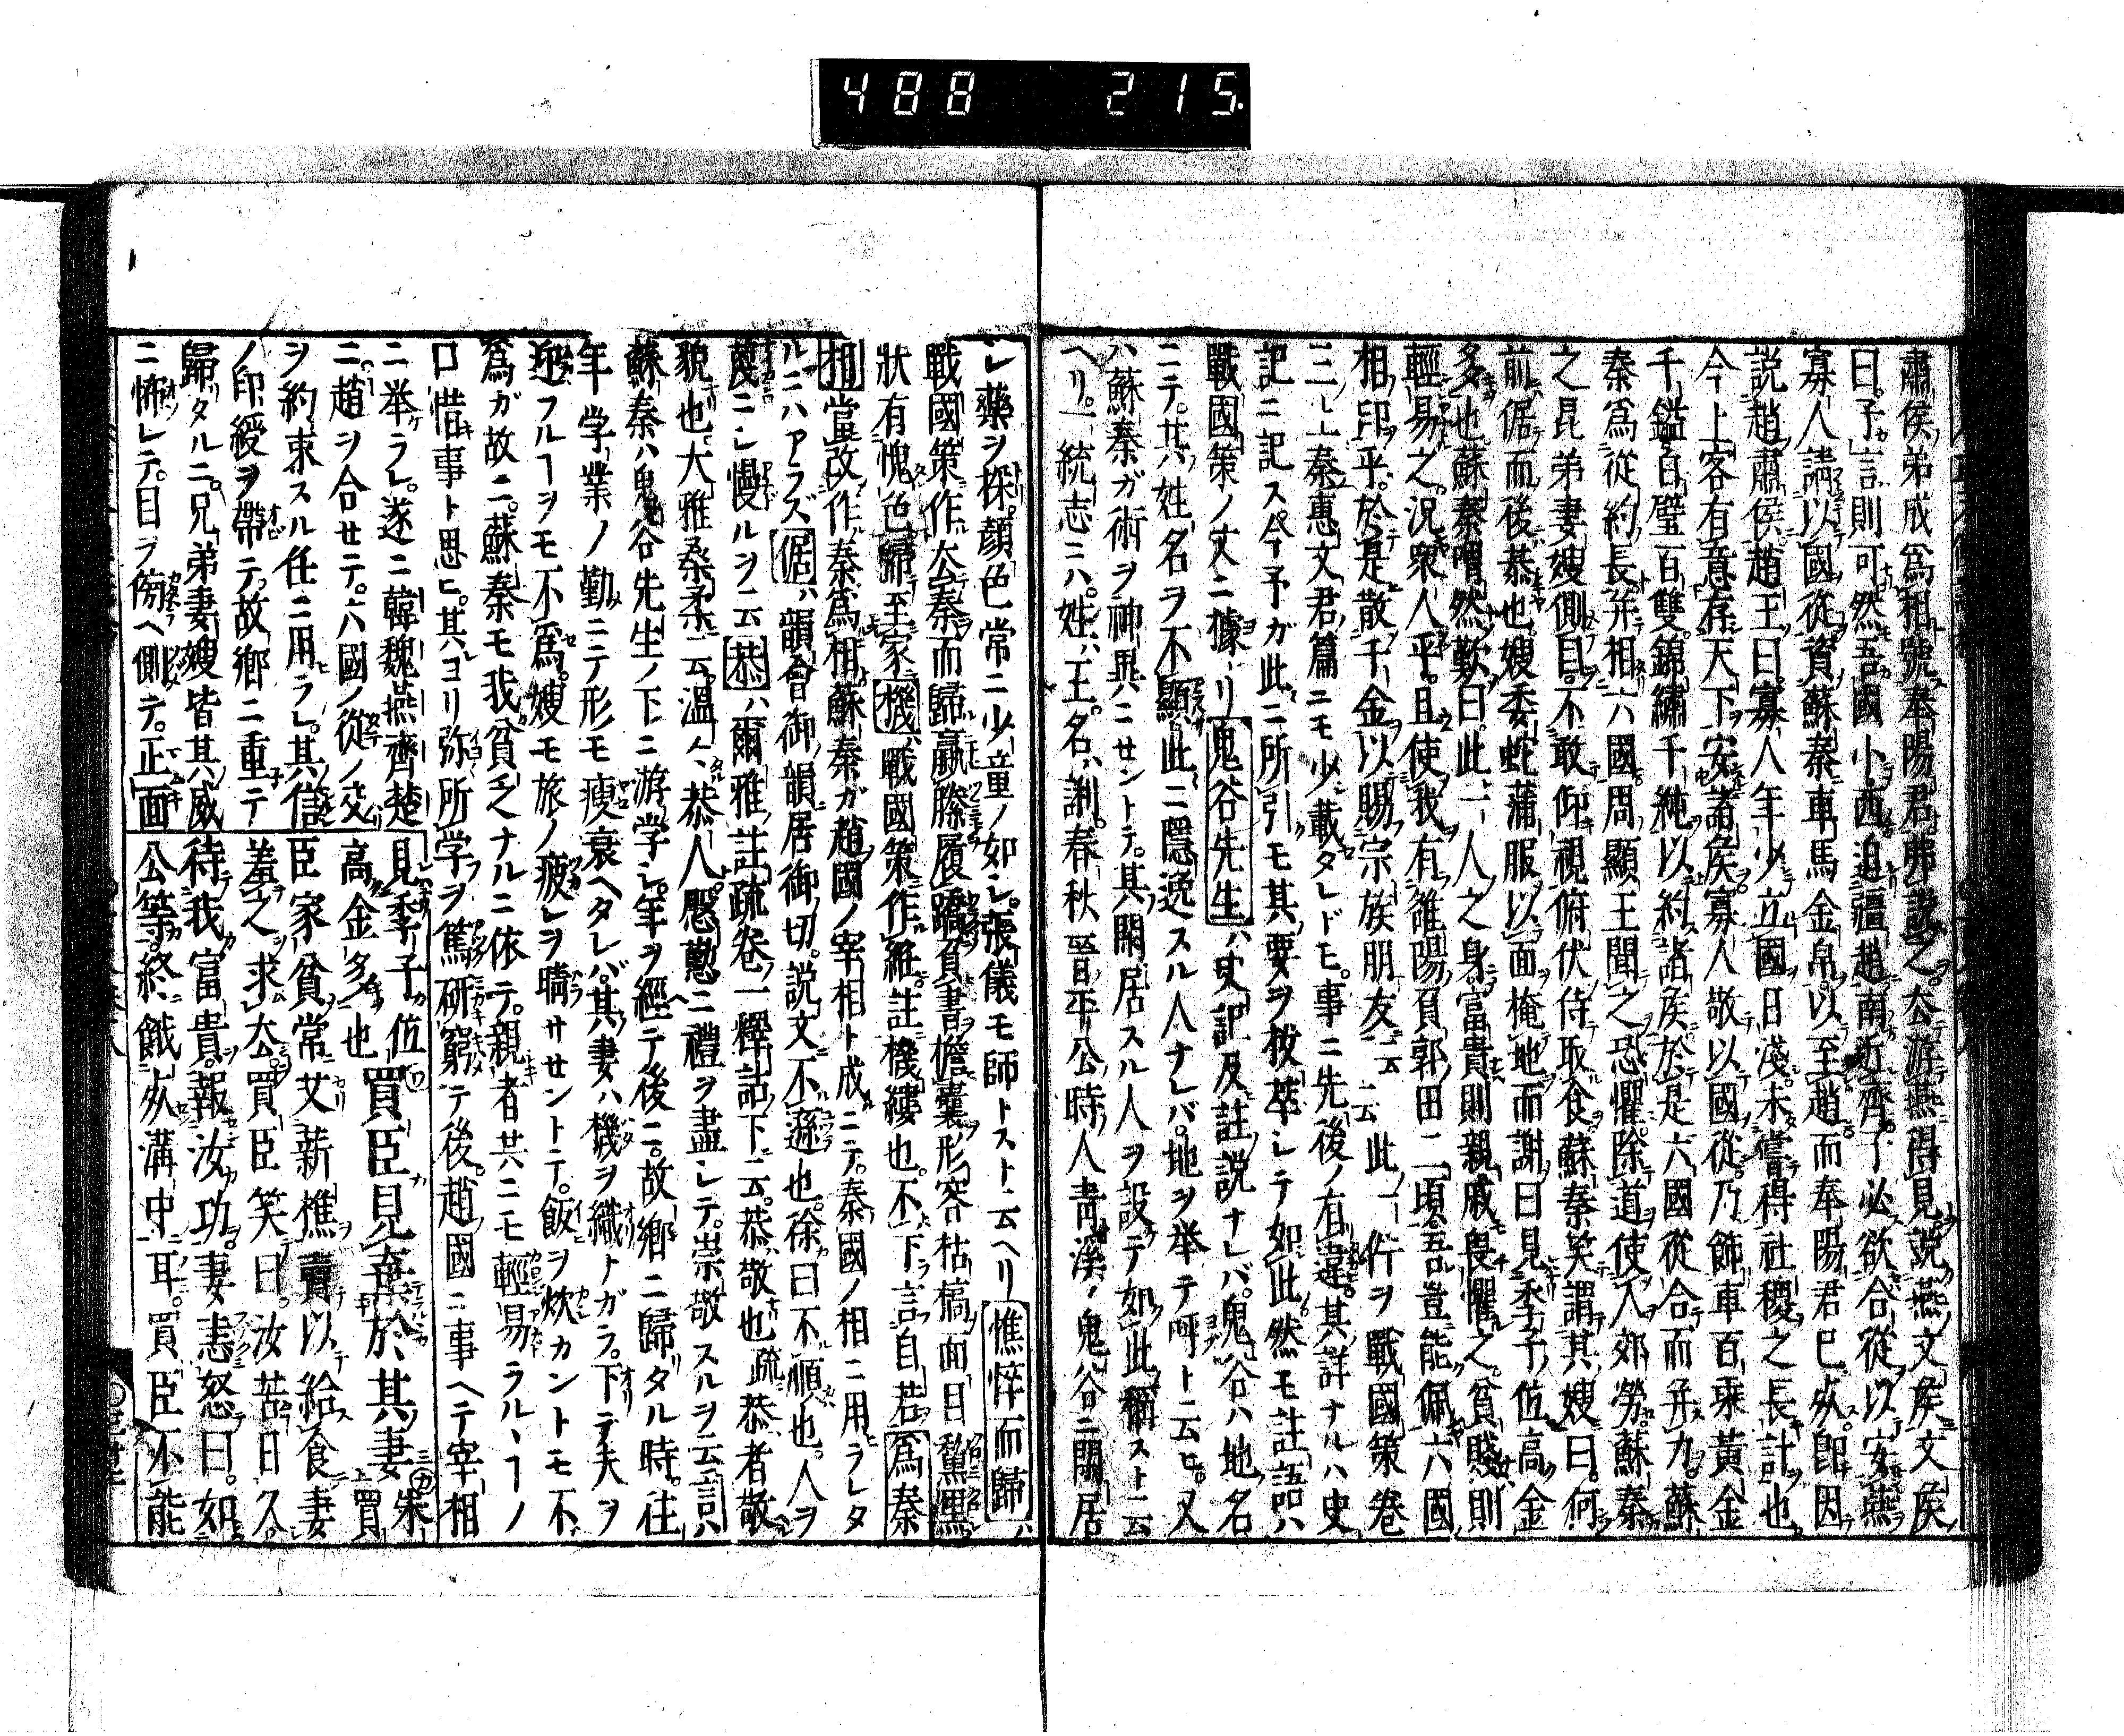 488 215
肅侯弟成爲相號奉陽君弗説之。去游燕得見説燕文侯文侯
曰。子言則可然吾國小。西迫彊趙南近齊。子必欲合從以安燕
寡人請以國從資蘇秦車馬金帛。以至趙。而奉陽君已死。即因
説趙肅侯趙王曰寡人年少立國日淺。未嘗得社稷之長計也
今上客有意存天下安諸侯寡人敬以國從。乃飾車百乘黄金
千鎰白璧百雙錦繡千純以約諸侯於是六國從合而并力。蘇
秦爲從約長并相六國周顯王聞之恐懼除道使人郊勞蘇秦
之昆弟妻嫂側目。不敢仰視俯伏侍取食蘇秦笑謂其嫂曰。何
前倨而後恭也。嫂委蛇蒲服以面掩地而謝曰見季子位高金
多也蘇秦喟然歎曰。此一人之身。富貴則親戚畏懼之。貧賤則
輕易之。況衆人乎。且使我有雒陽負郭田二頃吾豈能佩六國
相印乎。於是散千金以賜宗族朋友云云此一件ヲ戰國策卷
三ノ上秦惠文君篇ニモ少載タレドモ。事ニ先後ノ有違。其詳ナルハ史
記ニ記ス。今予ガ此ニ所引モ其要ヲ拔萃シテ如此然モ註語ハ
戰國策ノ文ニ據リ鬼谷先生ハ史記及註説ナレバ。鬼谷ハ地名
ニテ。其姓名ヲ不顯。此ニ隱逸スル人ナレバ。地ヲ举テ呼トニ云ヒ。又
ハ蘇秦ガ術ヲ神異ニセントテ。其閑居スル人ヲ設テ如此稱スト云
ヘリ。一統志ニハ。姓ハ王。名ハ詡。春秋晉平公時人青溪ノ鬼谷ニ閑居
シ藥ヲ採。顔色常ニ少童ノ如シ。張儀モ師トスト云ヘリ憔悴而歸ハ
戰國策作去秦而歸贏縢履蹻負書擔囊形容枯槁面目黧黒
狀有愧色歸至家機ハ戰國策作絍註機縷也。不下言自若爲秦
相當改作秦爲相蘇秦ガ趙國ノ宰相ト成ニテ。秦國ノ相ニ用ラレタ
ルニハアラズ倨ハ韻會御韻居御切。説文不遜也。徐曰不順也。人ヲ
蔑ニシ慢ルヲ云恭ハ爾雅註疏卷一釋詁下云。恭敬也疏恭者敬
貌也。大雅桑柔云。溫々恭人。慇懃ニ禮ヲ盡シテ。崇敬スルヲ云言ハ
蘇秦ハ鬼谷先生ノ下ニ游学シ。年ヲ經テ後ニ。故鄉ニ歸タル時。往
年学業ノ勤ニテ形モ瘦衰ヘタレバ。其妻ハ機ヲ織トガラ。下テ夫ヲ
迎フルヿヲモ不爲。嫂モ旅ノ疲レヲ晴サセントテ。飯ヲ炊カントモ不
爲ガ故ニ。蘇秦モ我貧乏ナルニ依テ。親者共ニモ輕易ラルヽヿノ
口惜事ト思ヒ。其ヨリ弥所学ヲ篤研窮テ後。趙國ニ事ヘテ宰相
ニ举ラレ。遂ニ韓魏燕齊楚
ニ。趙ヲ合セテ。六國ノ從ノ交
ヲ約束スル任ニ用ラレ。其信
ノ印綬ヲ帶テ。故鄉ニ重テ
歸タルニ。兄弟妻嫂皆其威
ニ怖レテ。目ヲ傍ヘ側テ。正面
見季子位
高金多也
買臣見棄於其妻 朱買
臣家貧常艾薪樵賣以給食妻
羞之求去。買臣笑曰。汝苦日久。
待我富貴。報汝功。妻恚怒曰。如
公等。終餓死溝中耳。買臣不能